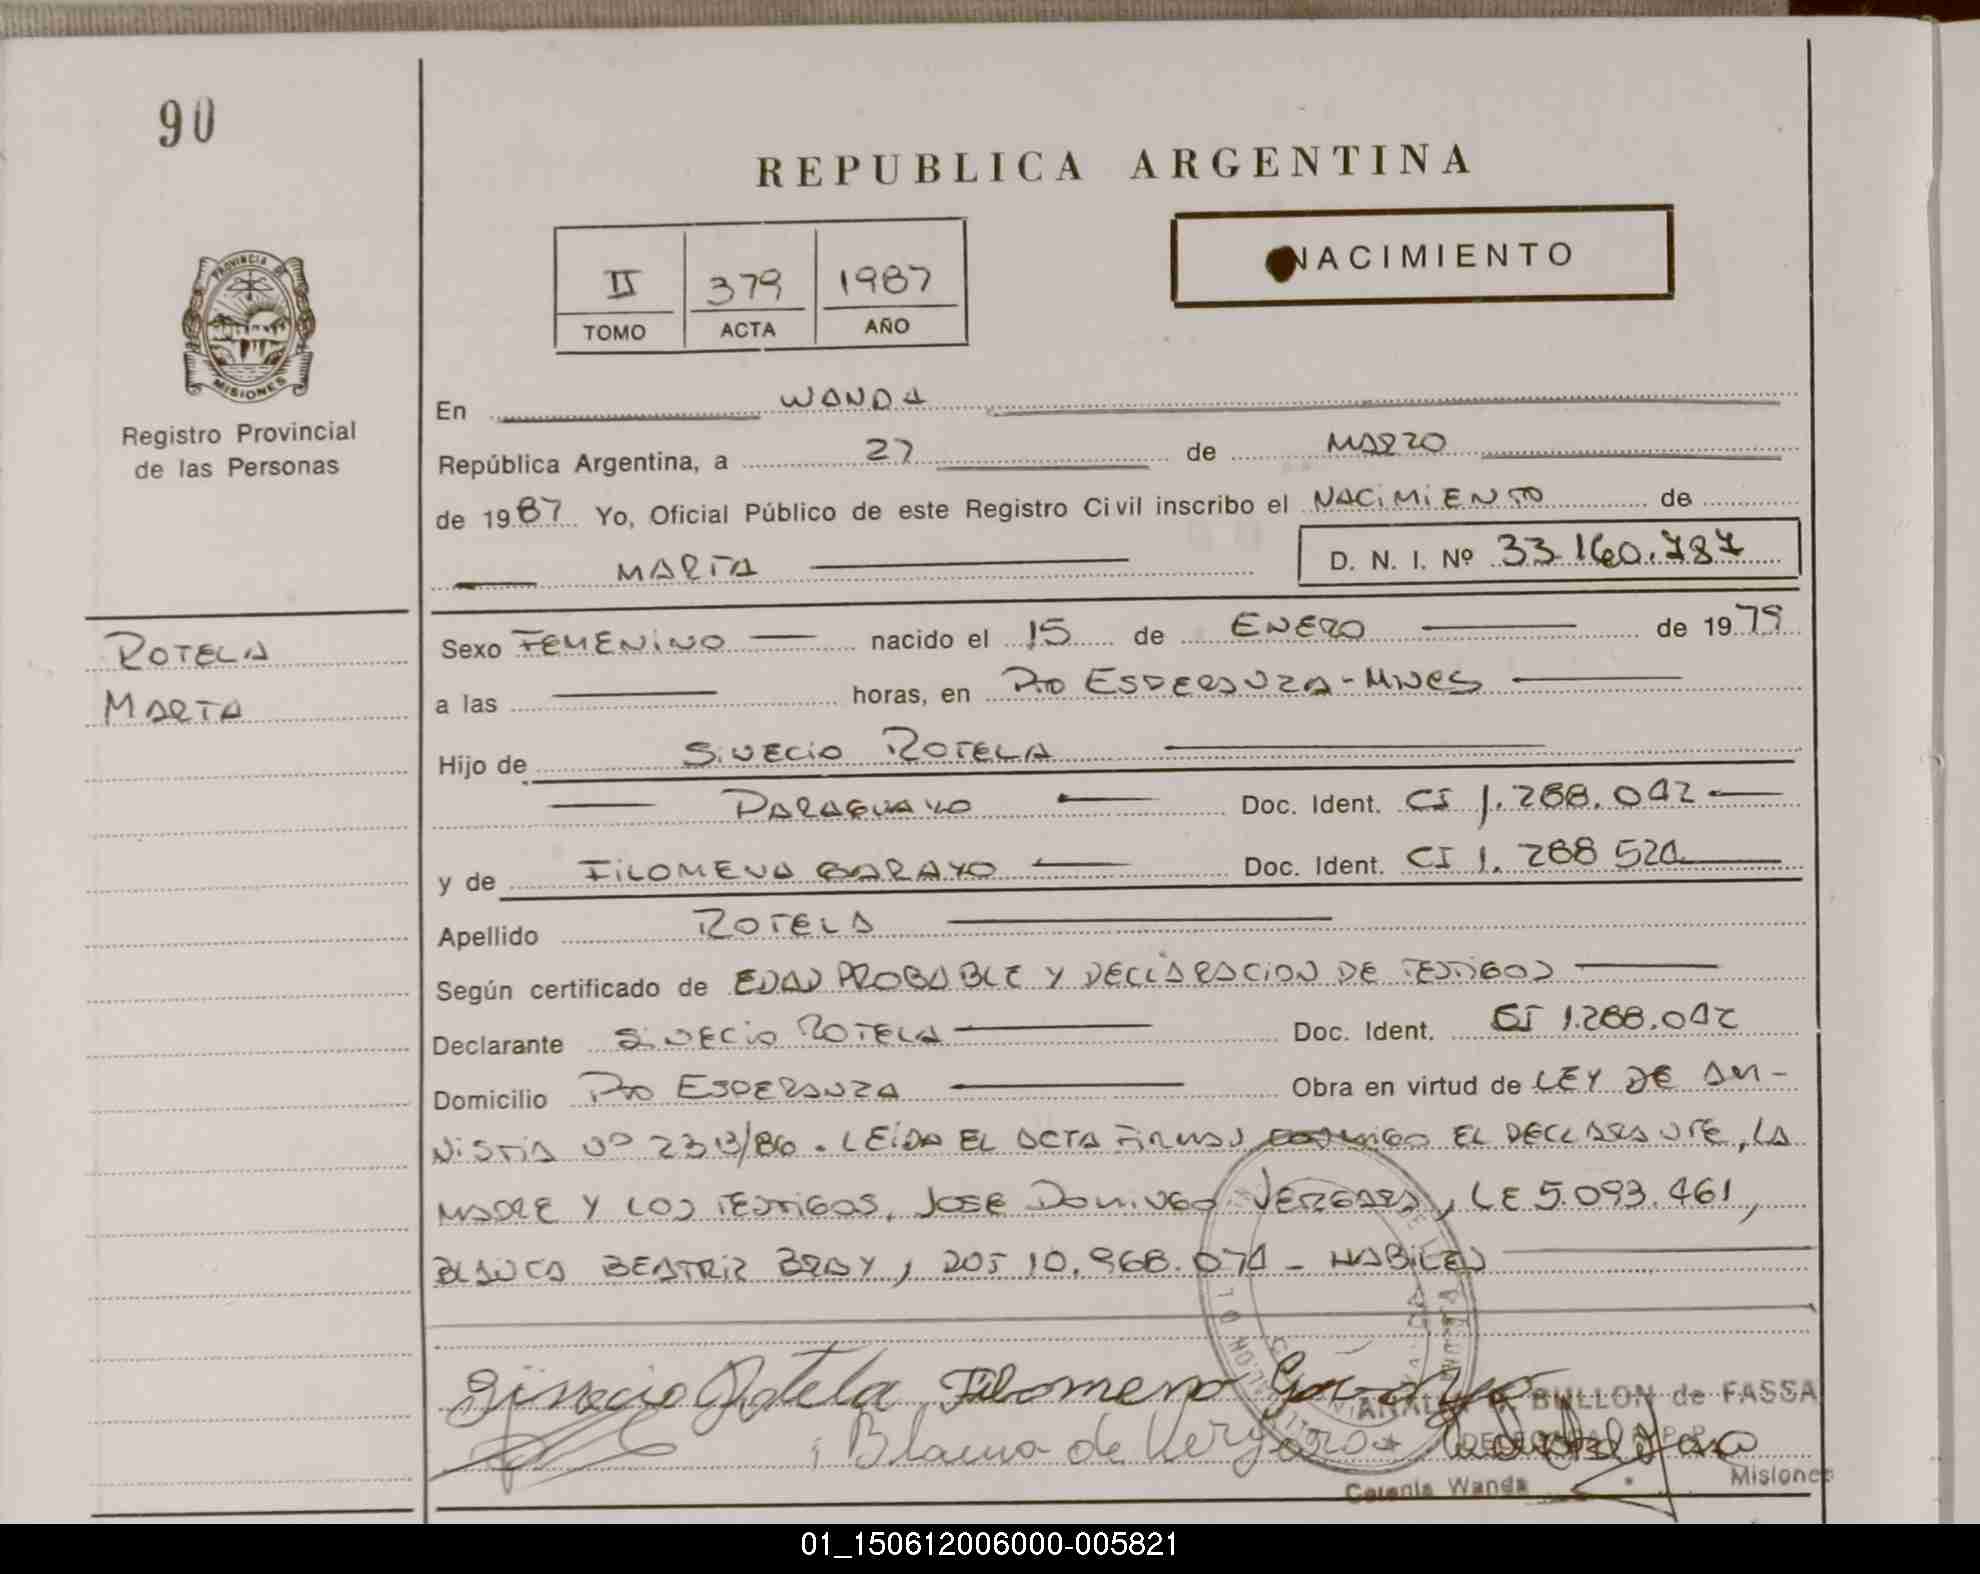 90
REPUBLICA ARGENTINA
PROVINCIA DE
MISIONES
Registro Provincial
de las Personas
II 379 1987
TOMO ACTA AÑO
NACIMIENTO
En WANDA
República Argentina, a 27 de MARZO
de 1987 Yo, Oficial Público de este Registro Civil inscribo el NACIMIENTO de
MARTA D. N. I. Nº 33.160.787
ROTELA
MARTA
Sexo FEMENINO nacido el 15 de ENERO de 1979
a las horas, en Pto ESPERANZA-MNES
Hijo de SINECIO ROTELA
PARAGUAYO Doc. Ident. CI 1.288.042
y de FILOMENA GARAYO Doc. Ident. CI 1.288 521
Apellido ROTELA
Según certificado de EDAD PROBABLE Y DECLARACION DE TESTIGOS
Declarante SINECIO ROTELA Doc. Ident. CI 1.288.042
Domicilio Pto ESPERANZA Obra en virtud de LEY DE AM-
NISTIA Nº 2313/86. LEIDA EL ACTA FIRMAN CONMIGO EL DECLARANTE, LA
MADRE Y LOS TESTIGOS, JOSE DOMINGO VERGARA, LE 5.093.461,
BLANCA BEATRIZ BRAY, DOT 10.968.071 - HABILES
Sinecio Rotela Filomena Garayo
BULLON de FASSA
Blanca de Vergara
Colonia Wanda Misiones
01_150612006000-005821